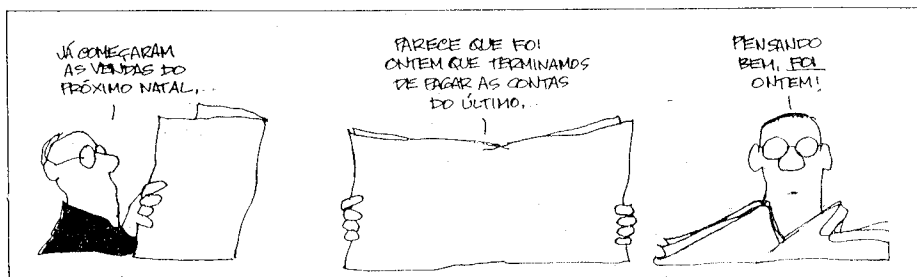 JÁ COMEÇARAM
AS VENDAS DO
PRÓXIMO NATAL...
PARECE QUE FOI
ONTEM QUE TERMINAMOS
DE PAGAR AS CONTAS
DO ÚLTIMO...
PENSANDO
BEM, FOI
ONTEM!